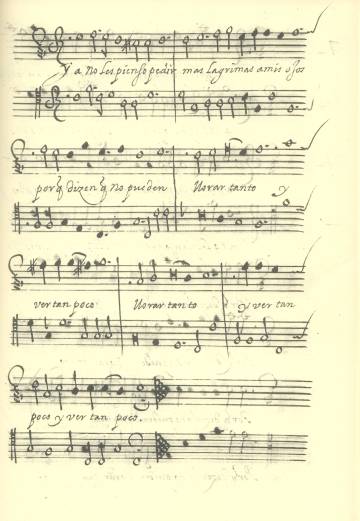 Ya no les pienso pedir mas lagrimas amis ojos
porq̃ dizen q̃ no pueden llorar tanto y
ver tan poco llorar tanto y ver tan
poco y ver tan poco